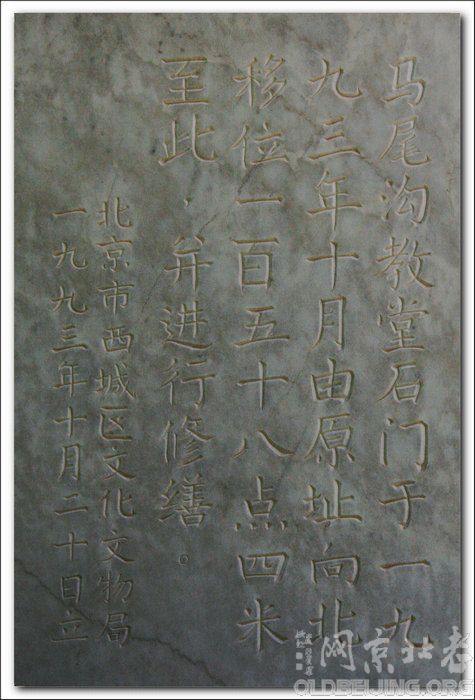 马尾沟教堂石门于一九
九三年十月由原址向北
移位一百五十八点四米
至此，并进行修缮。
北京市西城区文化文物局
一九九三年十月二十日立
老北京网
OLDBEIJING.ORG